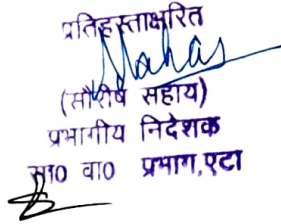 प्रतिहस्ताक्षरित
(सौरीष सहाय)
प्रभागीय निदेशक
सा० वा० प्रभाग,एटा